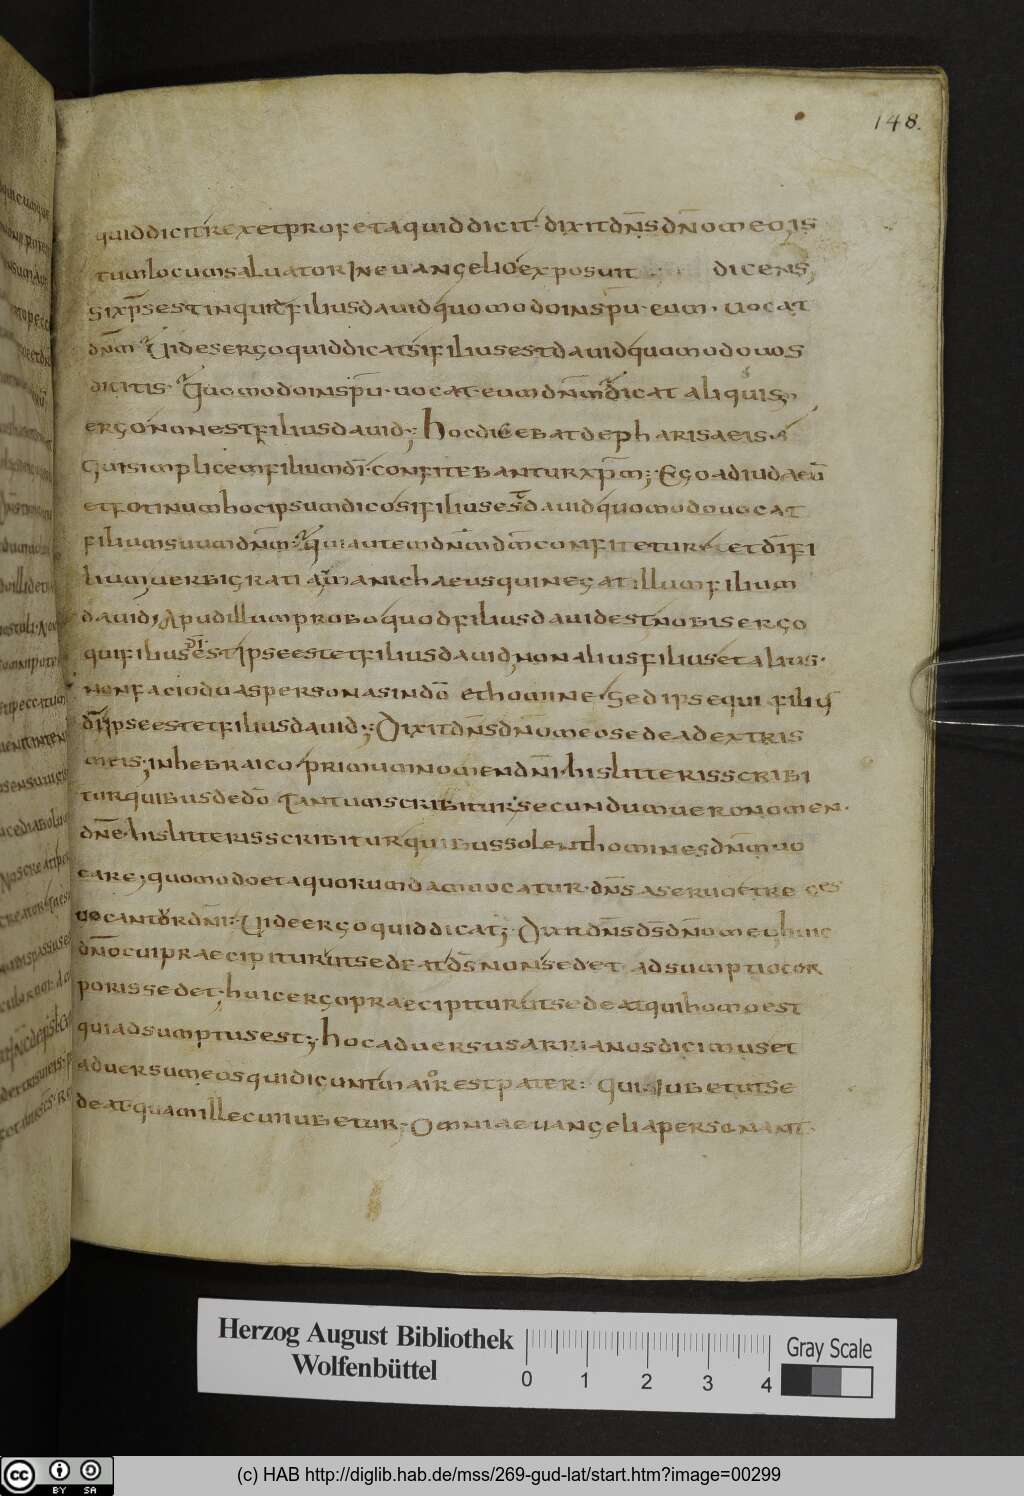 148.
quid dicit rex et profeta quid dicit· dixit dn̄s dn̄o meo is
tum locum saluator in euangelio exposuit dicens,
si xp̄s est inquid filius dauid quomodo in sp̄u· eum· uocat
dn̄m Uides ergo quid dicat si filius est dauid quomodo uos
dicitis· Quomodo in sp̄u· uocat· eum dn̄m dicat aliquis,
ergo non est filius dauid; hoc dicebat de pharisaeis·
Qui simplicem filium dī· confitebantur xp̄m; Ego ad iudaeū
et fotinum hoc ipsum dico si filius est dauid quomodo uocat
filium suum dn̄m· qui autem dn̄m dm̄ confitetur et dī fi
lium uerbi grati a manichaeus qui negat illum filium
dauid, Apud illum probo quod filius dauid est nobis ergo
qui filius dī est ipse est et filius dauid, non alius filius et alius·
non facio duas personas in dō et homine· Sed ipse qui filius
dī ipse est et filius dauid; Dixit dn̄s dn̄o meo sede ad extris
meis, in hebraico primum nomen dn̄i· his litteris scribi
tur quibus de dō tantum scribitur, secundum uero nomen·
dn̄e· his litteris scribitur quibus solent homines dn̄m uo
care, quomodo et aquorumdam uocatur· dn̄s a seruo et re ges
uocantur dn̄i: Uide ergo quid dicat; Dixit dn̄s ds̄ dn̄o meo, huic
dn̄o cui praecipitur ut sedeat ds̄ non sedet adsumptio cor
poris sedet, huic ergo praecipitur ut sedeat qui homo est
qui adsumptus est; hoc aduersus arrianos dicimus et
aduersum eos qui dicunt maior est pater: qui iubet ut se
deat· quam ille cui iubetur· Omnia euangelia personant
Herzog August Bibliothek
Wolfenbüttel
0 1 2 3 4
Gray Scale
(c) HAB http://diglib.hab.de/mss/269-gud-lat/start.htm?image=00299
cc BY SA